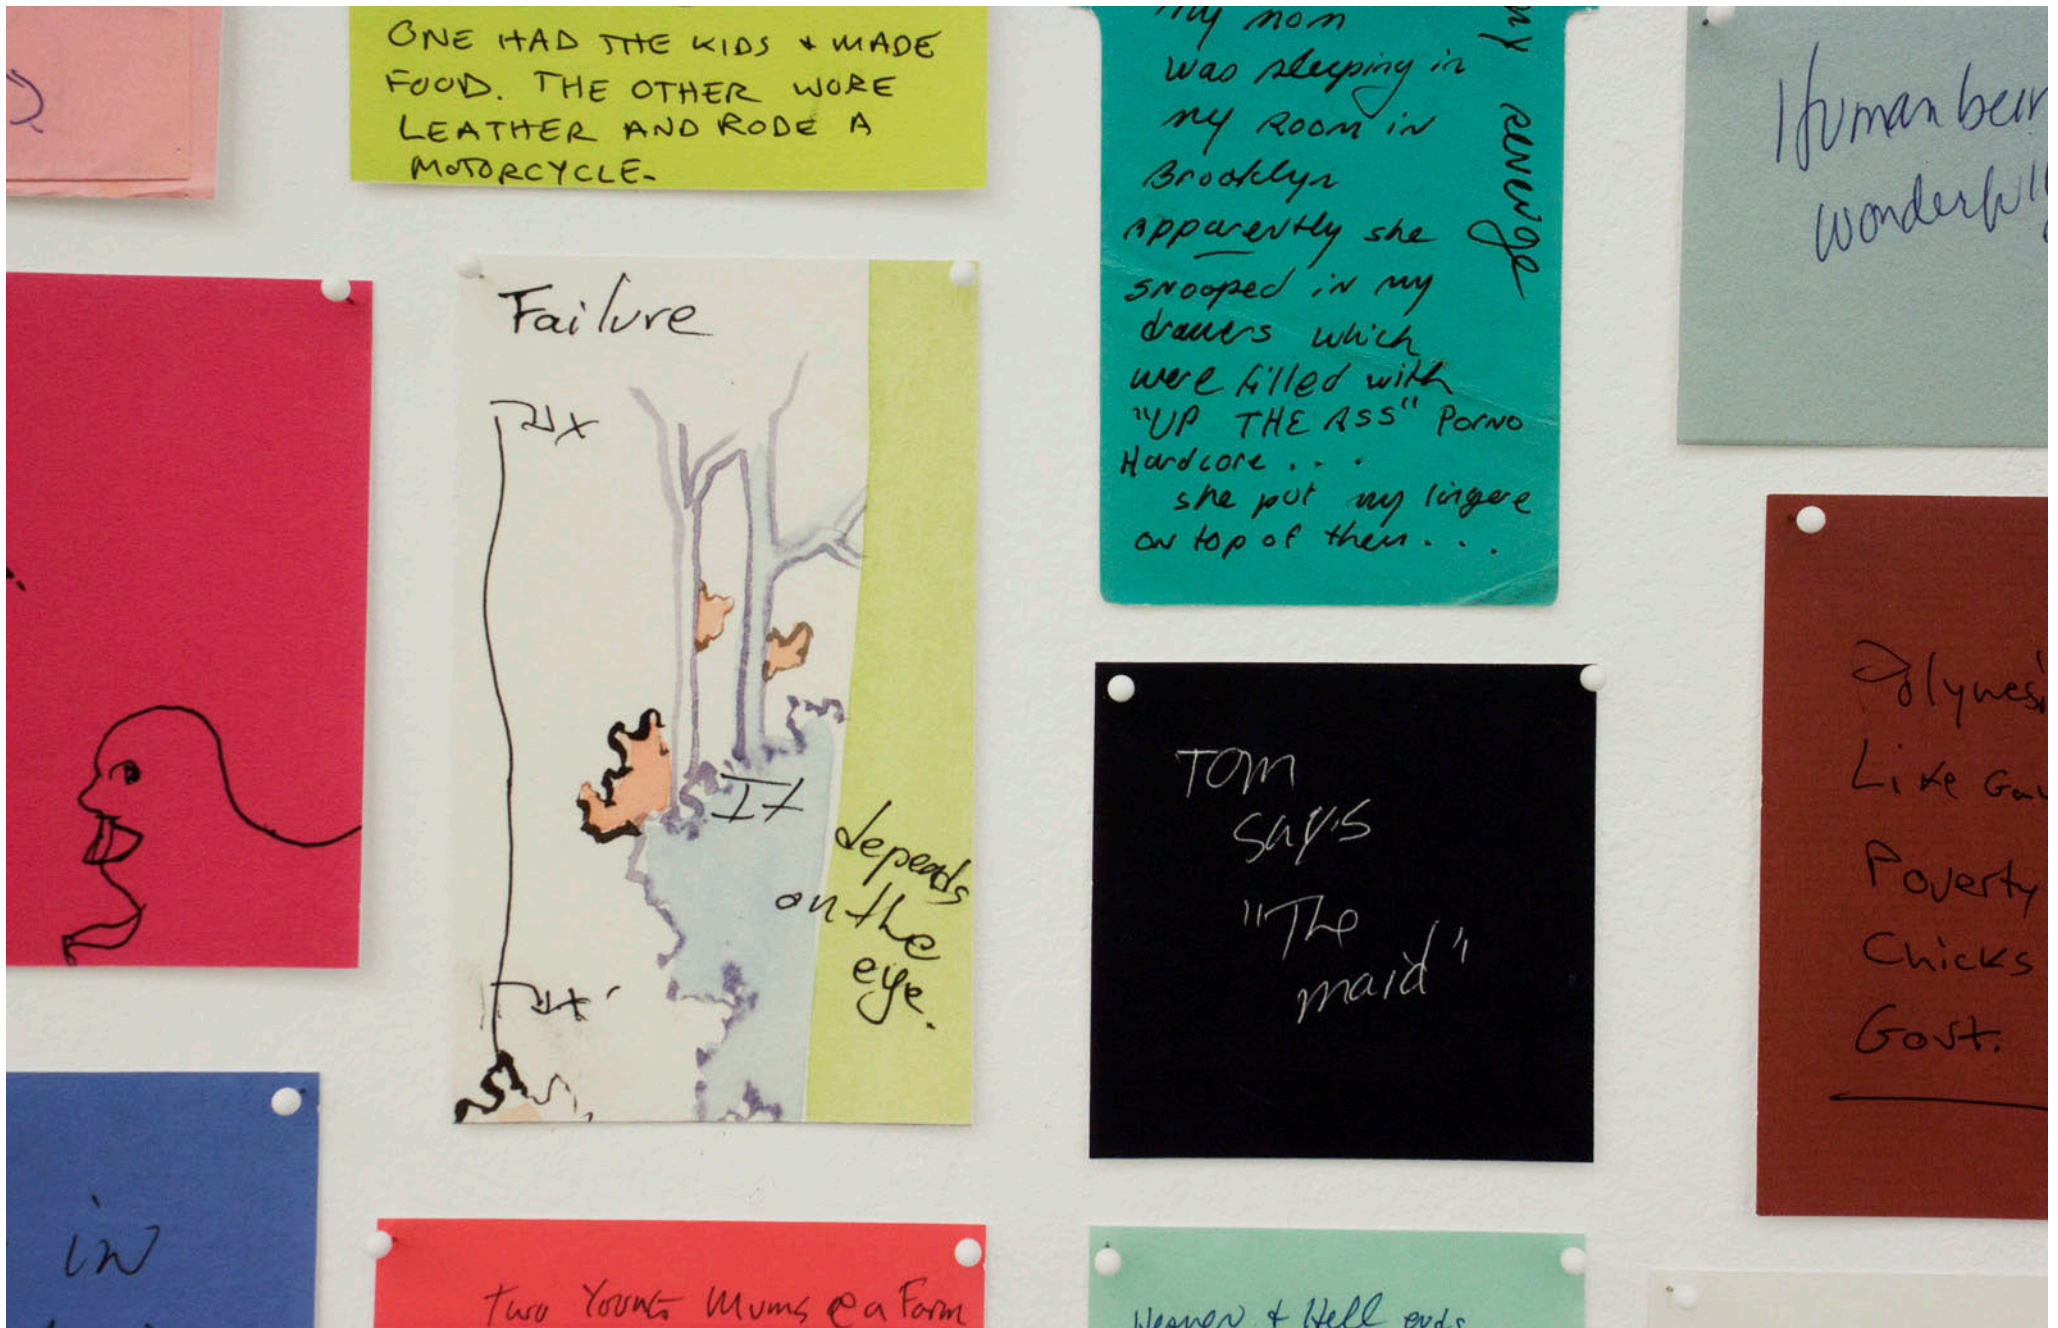 ONE HAD THE KIDS + MADE
FOOD. THE OTHER WORE
LEATHER AND RODE A
MOTORCYCLE.
my mom
was sleeping in
my room in
Brooklyn
apparently she
snooped in my
drawers which
were filled with
"UP THE ASS" Porno
Hardcore . . .
she put my lingere
on top of them . . .
my revenge
Human
wonderful
Failure
It
depends
on the
eye.
Tom
says
"The
maid"
Like
Poverty
Chicks
Govt.
in
Two Young Mums @ a Farm
Heaven & Hell ends